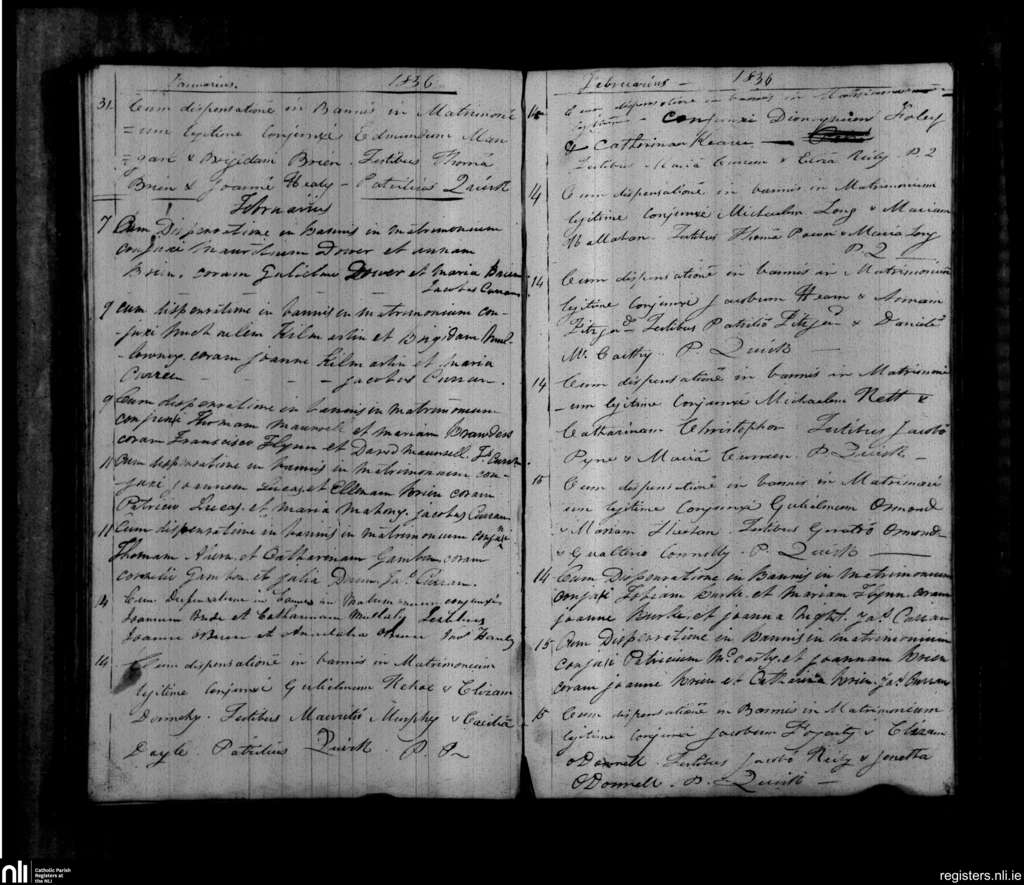 Januarius. 1836
31 Cum dispensatione in Bannis in Matrimoni
=um legitime Conjunxi Edmundum Man
=gan & Brigidam Brien. Testibus Thomâ
Brien & Joanne Healy - Patritius Quirk
Februarius
7 Cum Dispensatione in Bannis in matrimonium
conjuxi Mauritium Dower et annam
Brien. coram Gulielmo Dower et maria Brien
Jacobus Curran
9 Cum dispensatione in bannis in matrimonium con-
juxi Michaelem Kilmartin et Brigidam Mul-
downy coram Joanne Kilmartin et maria
Curren - - - Jacobus Curran.
9 Cum dispensatione in bannis in matrimonium
conjunxi Thomam Maunsell et mariam Brawders
coram Francisco Flynn et David Maunsell. Js Curran
10 Cum dispensatione in bannis in matrimonium con-
juxi Joannem Lucas, et Ellenam brien coram
Patricio Lucas, et maria Mahony. Jacobus Curran
11 Cum dispensatione in bannis in matrimonium conjuxi
Thomam et Catharinam Gambon coram
Gambon, et Julia Jas. Curran.
14 Cum Dispensatione in bannis in Matrimonium conjunxi
Joannem et Catharinam Testibus
Joanne OBrien et
14 Cum dispensatione in bannis in Matrimonium
legitime Conjunxi Gulielmum Kehoe & Elizam
Testibus Mauritio Murphy & Caecilia
Doyle. Patritius Quirk. P. P.
Februarius - 1836
14 Cum dispensatione in bannis in Matrimonium
legitime - Conjunxi Dionysium Foley
& Catherinam Keane -
Testibus Maria Curreen & Eliza Reily. P. Q
14 Cum dispensatione in bannis in Matrimonium
legitime Conjunxi Michaelem Long & Mariam
Hallahan. Testibus Thoma Power & Maria Long
P. Q
14 Cum dispensatione in bannis in Matrimonium
legitime Conjunxi Jacobum Hearn & Annam
Fitzger. Testibus Patritio Fitzger & Daniele
Mc Carthy. P. Quirk -
14 Cum dispensatione in bannis in Matrimoni
-um legitime Conjunxi Michaelem Nett &
Catharinam Christopher Testibus Jacobo
Pyne & Maria Curreen. P. Quirk -
15 Cum dispensatione in bannis in Matrimoni
um legitime Conjunxi Gulielmum Ormond
& Mariam Sheehan. Testibus Ormond
& Gualterio Connelly. P. Quirk -
14 Cum Dispensatione in Bannis in matrimonium
conjuxi burke, et mariam Flynn coram
joanne burke, et joanna Night. Jas. Curran
15 Cum Dispensatione in Bannis in matrimonium
conjuxi Patricium McCarty, et joannam brien
coram joanne brien et Catharina brien. Jas. Curran
15 Cum dispensatione in Bannis in Matrimonium
legitime Conjunxi Jacobum Fogarty & Elizam
ODonnell. Testibus Jacobo Reily & Jenetta
ODonnell. P. Quirk -
nli
Catholic Parish
Registers at
the NLI
registers.nli.ie